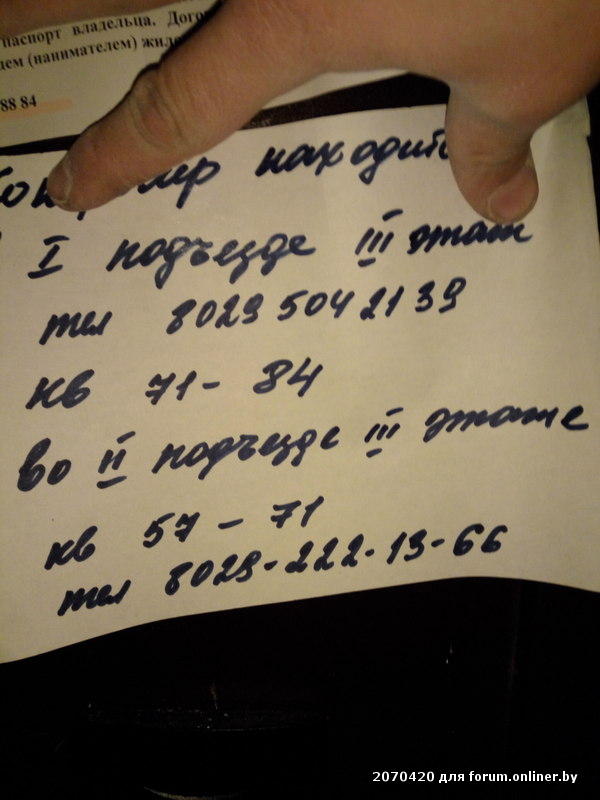 паспорт владельца. Дого
(нанимателем) жило
88 84
находит
I подъезде III этаж
тел 8029 504 21 39
кв 71 - 84
во II подъезде III этаже
кв 57 - 71
тел 8029-222-13-66
2070420 для forum.onliner.by